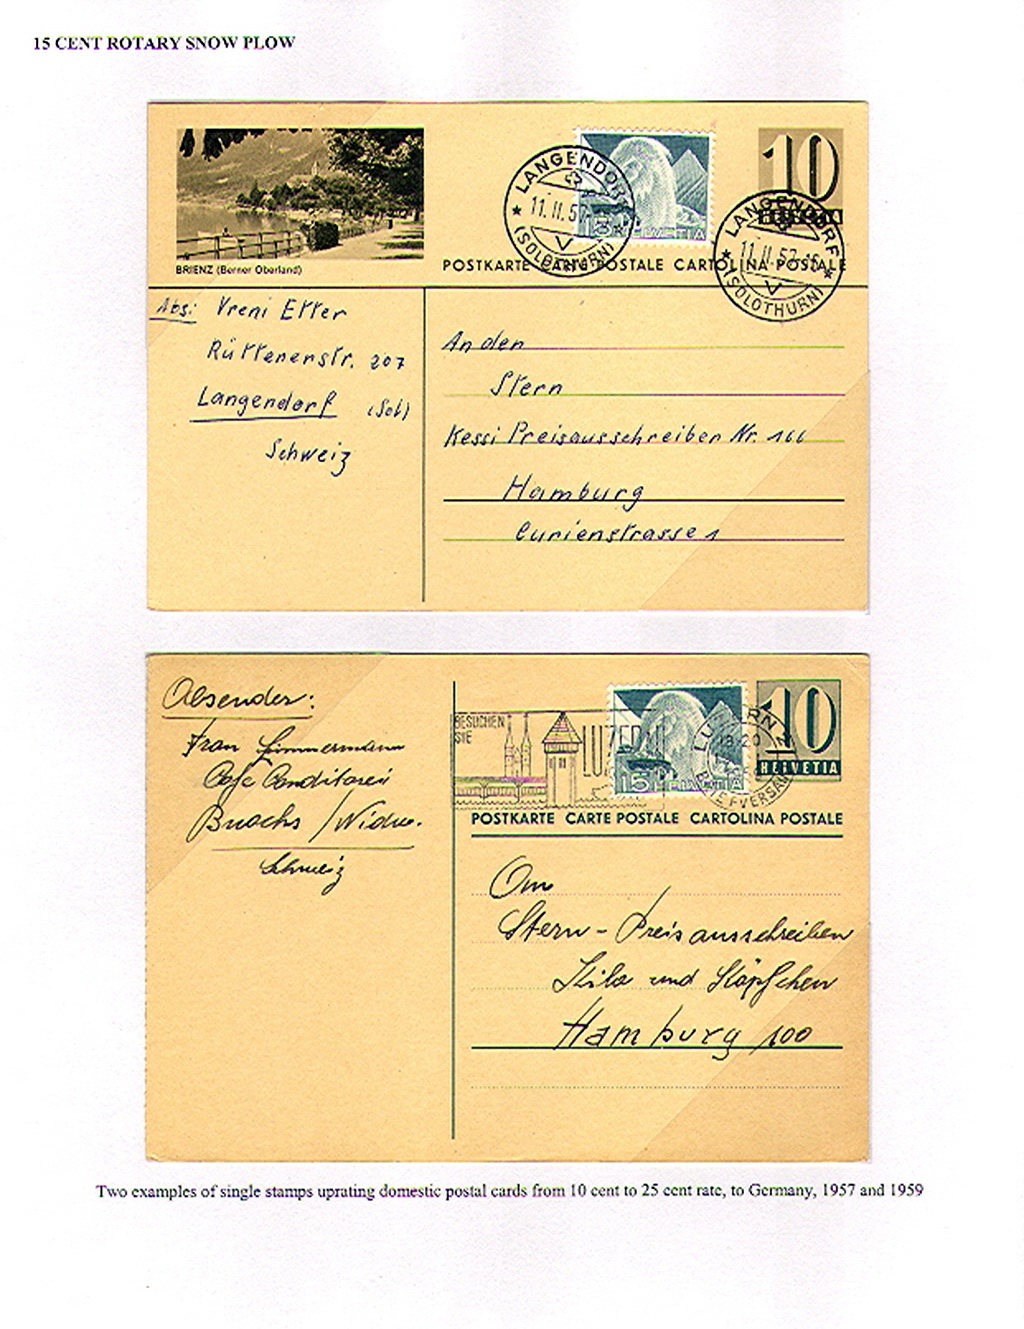 15 CENT ROTARY SNOW PLOW
BRIENZ (Berner Oberland)
LANGENDORF
11.II.57
V
(SOLOTHURN)
15
HELVETIA
10
LANGENDORF
11.II.57-15
V
(SOLOTHURN)
POSTKARTE CARTE POSTALE CARTOLINA POSTALE
Abs: Vreni Etter
Rüttenenstr. 207
Langendorf (Sol)
Schweiz
An den
Stern
Kessi Preisausschreiben Nr. 166
Hamburg
Curienstrasse 1
Absender:
Frau Zimmermann
Cafe Conditorei
Buochs / Nidw.
Schweiz
BESUCHEN
SIE
LUZERN
15
LUZERN 2
BRIEFVERSAND
10
HELVETIA
POSTKARTE CARTE POSTALE CARTOLINA POSTALE
Stern - Preisausschreiben
und Köpfchen
Hamburg 100
Two examples of single stamps uprating domestic postal cards from 10 cent to 25 cent rate, to Germany, 1957 and 1959